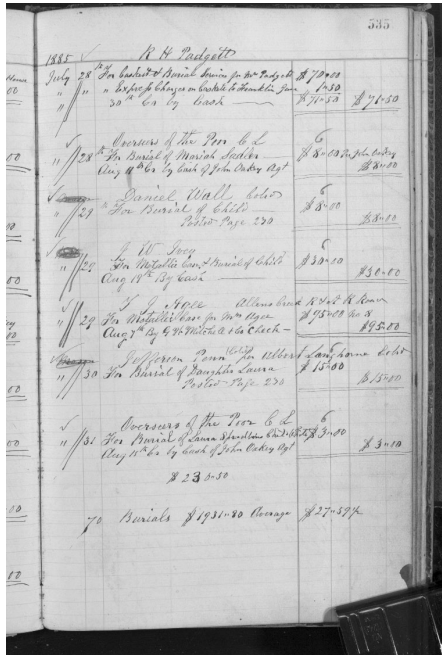 535
1885 R H Padgett
July 28th For Casket & Burial Services for Mr Padgett $70.00
" " " Express Charges on Casket to Franklin June 1.50
" 30th Cr by Cash $71.50 $71.50
Overseers of the Poor C L 6
" 28th For Burial of Mariah $8.00 Per John Oakey
Aug 11th Cr by Cash of John Oakey Agt $8.00
Daniel Wall Cold 6
" 29 " For Burial of Child $8.00
Posted Page 230 $8.00
J W Ivey 6
" 29 For Metallic Case & Burial of Child $30.00
Aug 19th By Cash $30.00
Agee Allens Creek
" 29 For Metallic Case for Mrs Agee $95.00 No 8
Aug 7th By G W Mitchell & Co Check $95.00
Jefferson Penn (Cold) for Albert Langhorne Cold
" 30 For Burial of Daughter Laura $15.00
Posted Page 230 $15.00
Overseers of the Poor C L 6
" 31 For Burial of Laura Child $3.00
Aug 11th Cr by Cash of John Oakey Agt $3.00
$230.50
70 Burials $1931.80 Average $27.59½